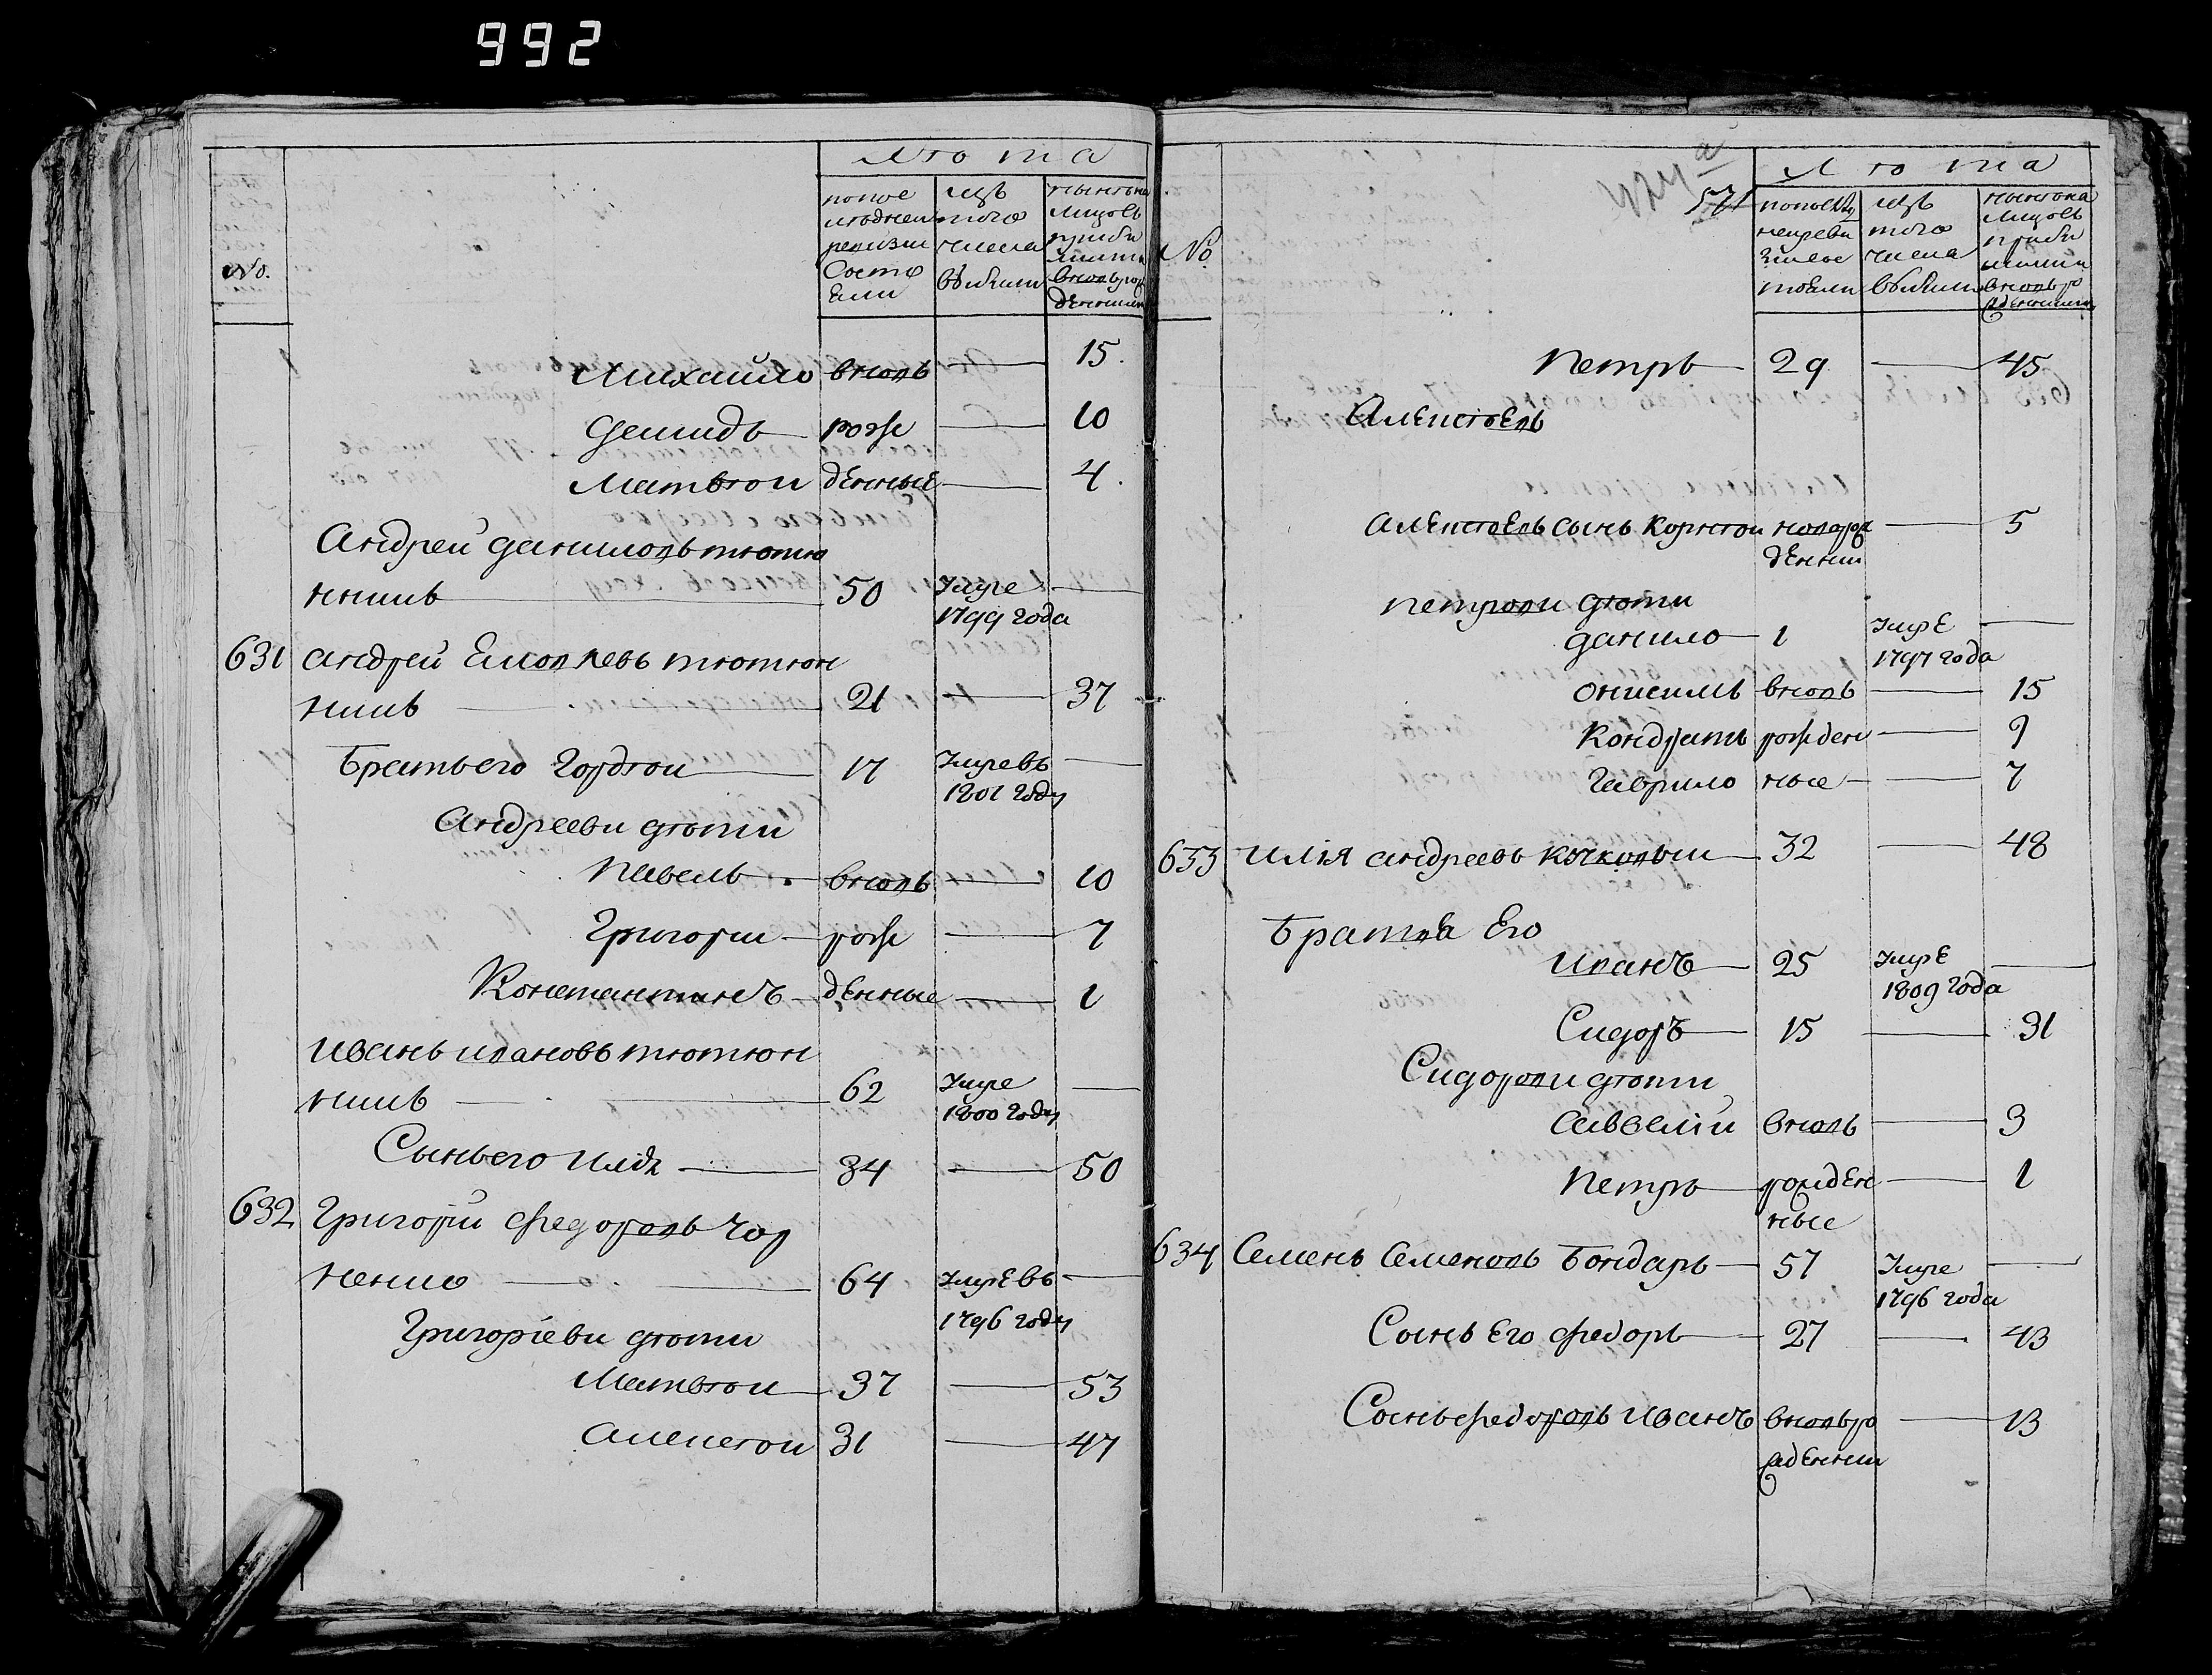 992
Лѣта
№.
попос
лѣдней
ревизии
Состо
Ели
изъ
того
числа
выбыли
нынѣ на
лицовъ
приби
лыми
вновьрож
денными
Михайло вновь — 15.
Демидъ — рож — 10
Матвѣй денные — 4.
Андрей даниловъ тютю
нникъ — 50 Умре —
1799 года
631 андрей Еаковлевъ тютюн
никъ — 21 — 37
Братъего Гордѣй — 17 Умревъ —
1801 году
Андрееви дѣти
Павелъ вновь — 10
Григорий — рож — 7
Константинъ — денные — 1
Иванъ ивановъ тютюн
никъ — 62 Умре —
1800 году
Сынъего Илія — 34 — 50
632 Григорій Федоровъ Чор
ненко — 64 Умревъ —
1796 году
Григоріеви дѣти
Матвѣй — 37 — 53
Алексѣй 31 — 47
571
Лѣта
№
изъ
того
числа
выбыли
нынѣ на
лицовъ
приби
лыми
вновьро
жденными
Петръ — 29 — 45
Алексѣевъ
Алексѣевъ сынъ Корнѣй новорож — 5
денни
Петрови дѣти
данило — 1 Умре —
1797 года
онисимъ вновь — 15
Кондратъ рожден — 9
Гаврило ные — 7
633 Илія андреевъ — 32 — 48
Братва Его
Иванъ — 25 Умре —
1809 года
Сидоръ — 15 — 31
Сидорови дѣти
Савелій вновь — 3
Петръ — рожден — 1
ные
634 Семенъ Семеновъ Бондаръ — 57 Умре —
1796 года
Сынъ Его Федоръ — 27 — 43
Сынъ Федоровъ Иванъ вновьро — 13
жденни